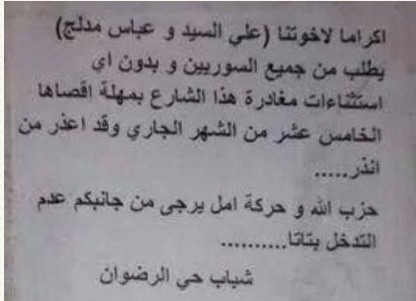 اكراما لاخوتنا (علي السيد و عباس مدلج)
يطلب من جميع السوريين و بدون اي
استثناءات مغادرة هذا الشارع بمهلة اقصاها
الخامس عشر من الشهر الجاري وقد اعذر من
انذر.....
حزب الله و حركة امل يرجى من جانبكم عدم
التدخل بتاتا..........
شباب حي الرضوان